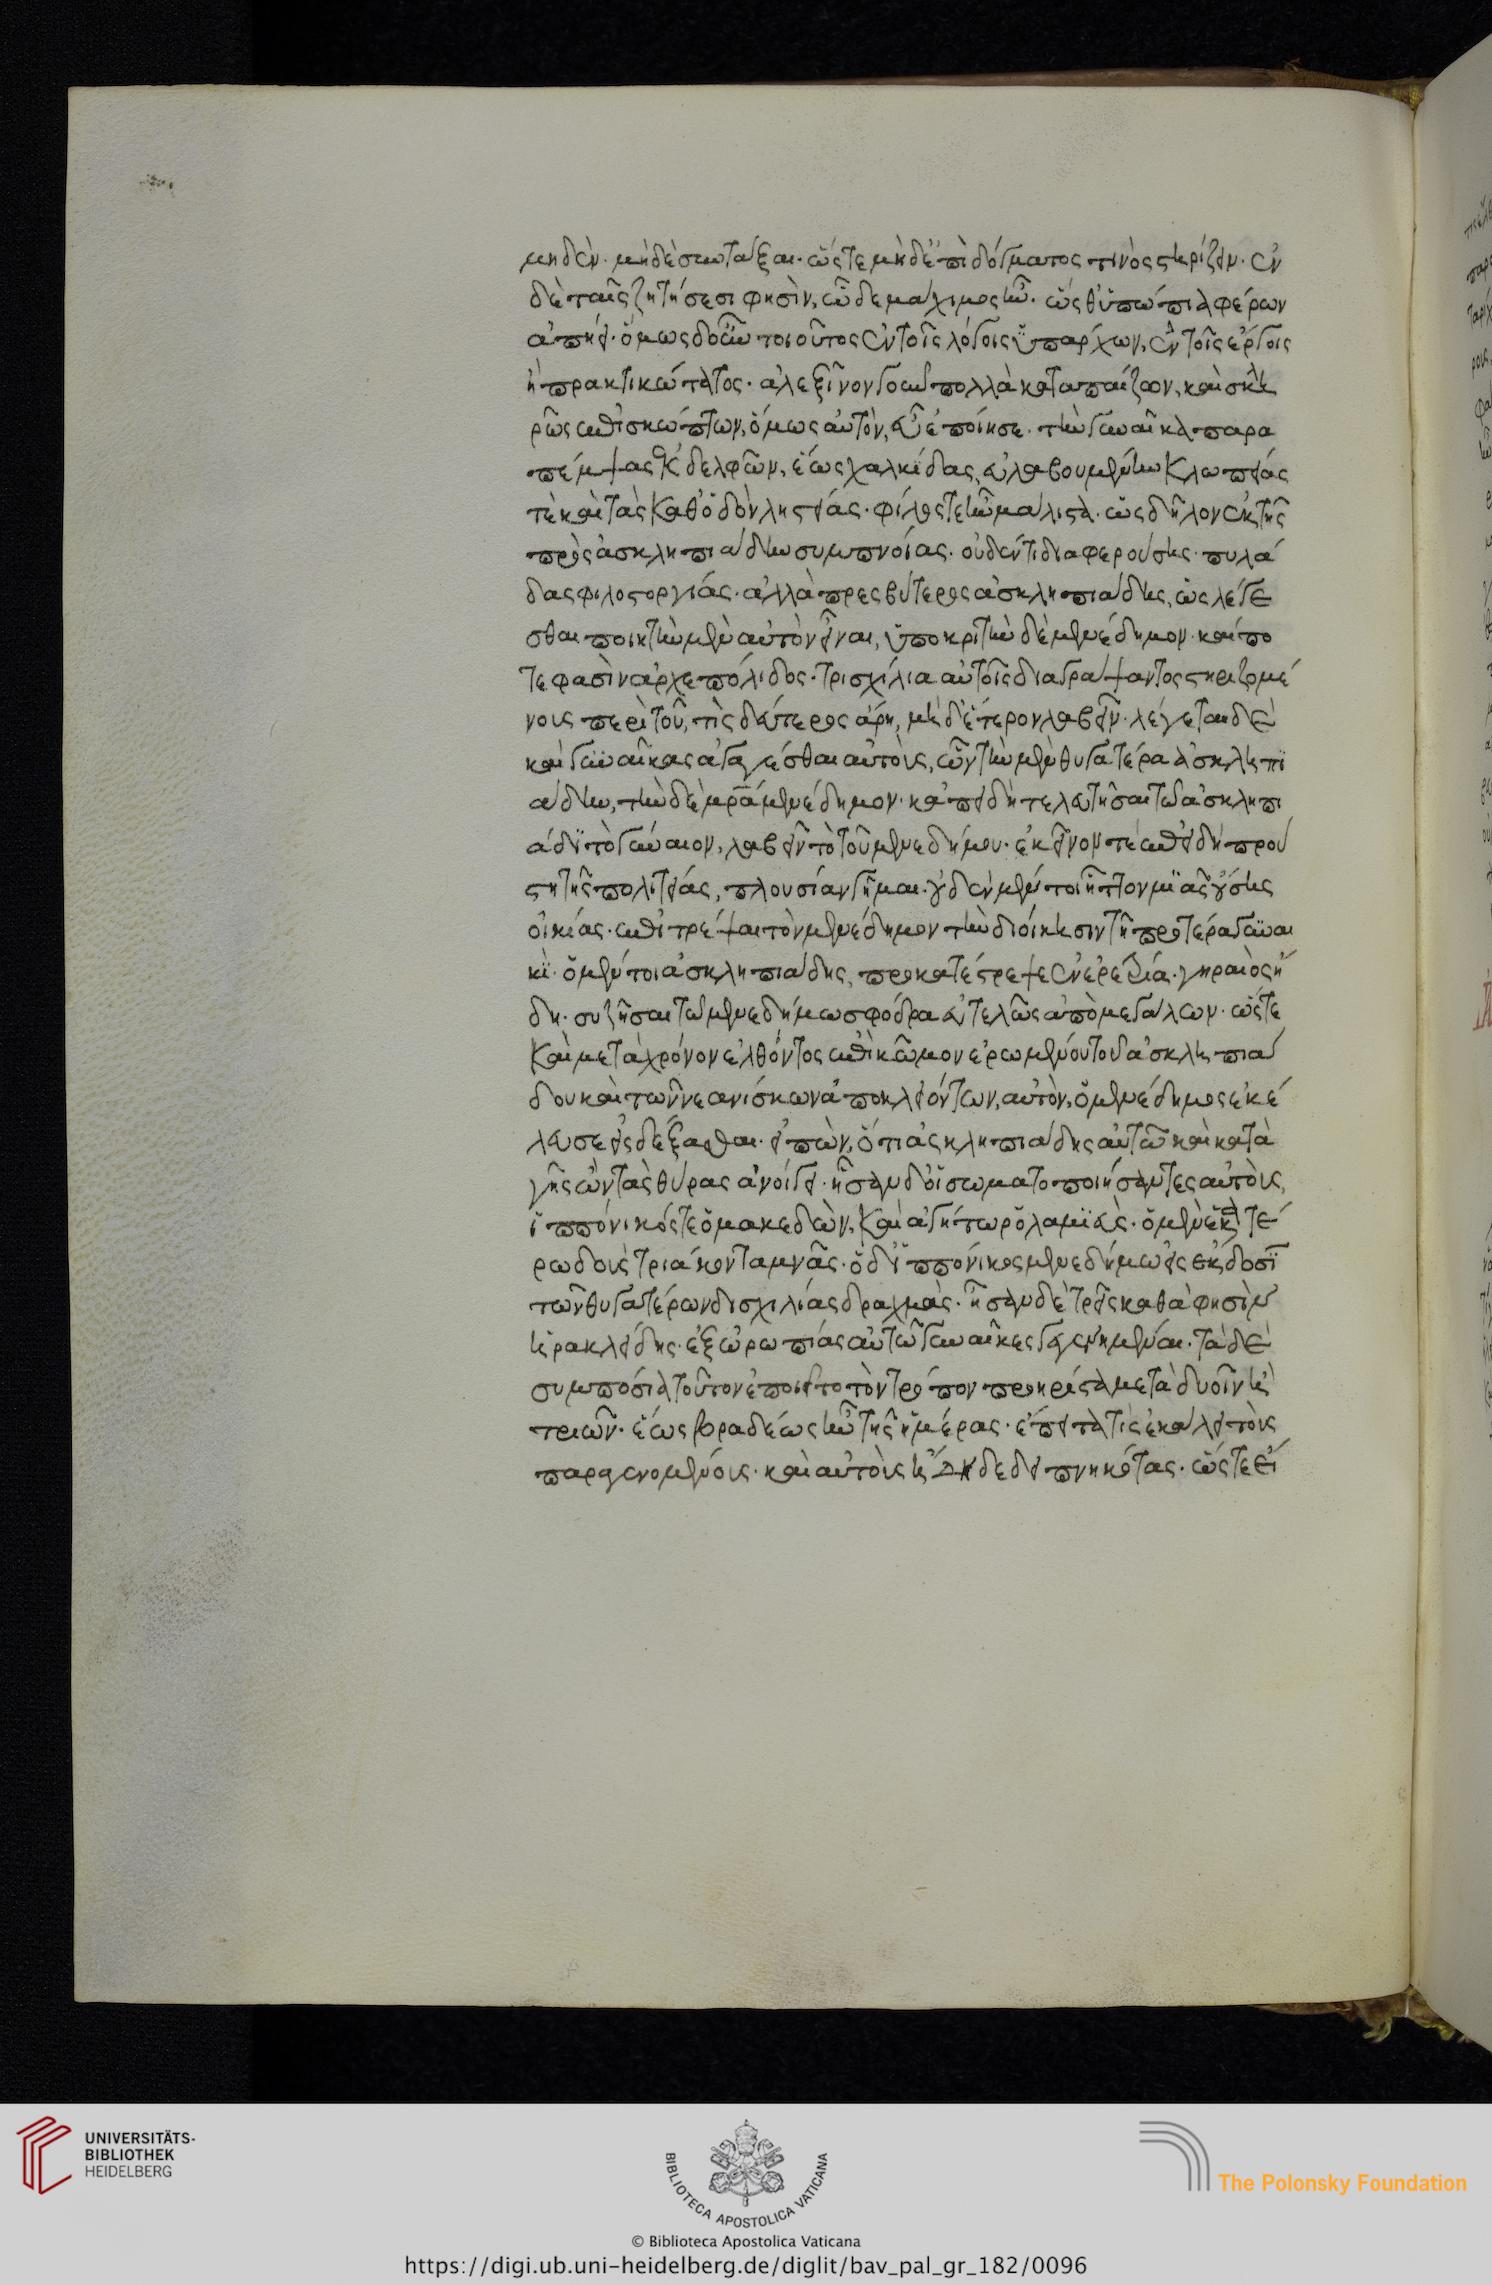 μηδὲν. μὴδὲ συνταξαι. ὥςτε μὴδ' ἐπὶ δόγματος τινὸς στηρίζειν. ἐν
δὲ ταῖς ζητήσεσι φησὶν, ὧδε μάχιμος ἦν. ὥςθ' ὑπώπια φέρων
ἀπῄει. ὅμως δ' οὖν τοιοῦτος ἐν τοῖς λόγοις ὑπάρχων, ἐν τοῖς ἔργοις
ἠ πρακτικώτατος. ἀλεξῖνον γοῦν πολλὰ καταπαίζων, καὶ σκλη
ρῶς ἐπισκώπτων, ὅμως αὐτὸν, εὖ ἐποίησε. τὴν γυναῖκα παρα
πέμψας ἐκ δελφῶν, ἕως χαλκίδας, εὐλαβουμένην κλωπείας
τὲ καὶ τὰς καθ' ὁδὸν ληστείας. φίλος τε ἦν μάλιστα. ὡς δῆλον ἐκ τῆς
πρὸς ἀσκληπιάδην συμπνοίας. οὐδέν τι διαφερούσης πυλά
δας φιλοστοργίας. ἀλλὰ πρεσβύτερος ἀσκληπιάδης, ὡς λέγε
σθαι ποιητὴν μὲν αὐτὸν εἶναι, ὑποκριτὴν δὲ μενέδημον. καί πο
τε φασὶν ἀρχεπόλιδος. τρισχίλια αὐτοῖς διαγράψαντος στηριζομέ
νους περὶ τοῦ, τὶς δεύτερος ἄρη, μὴδ' ἕτερον λαβεῖν. λέγεται δὲ
καὶ γυναῖκας ἀγαγέσθαι αὐτοὺς, ὧν τὴν μὲν θυγατέρα ἀσκληπι
άδην, τὴν δὲ μρᾶ μενέδημον. κἀπειδὴ τελευτῆσαι τῶ ἀσκληπι
άδι τὸ γύναιον, λαβεῖν τὸ τοῦ μενεδήμου. ἐκεῖνον τέ ἐπειδὴ πρού
στη τῆς πολιτείας, πλουσίαν γῆμαι. οὐδὲν μέν τοι ἧττον μιᾶς οὔσης
οἰκίας. ἐπιτρέψαι τὸν μενέδημον τὴν διοίκησιν τῆ προτέρα γυναι
κὶ. ὁ μέν τοι ἀσκληπιάδης, προκατέστρεψε ἐν ἐρετρία. γηραιὸς ἤ
δη. συζῆσαι τῶ μενεδήμω σφόδρα εὐτελῶς ἀπὸ μεγάλων. ὥςτε
καὶ μετὰ χρόνον ἐλθόντος ἐπὶ κῶμον ἐρωμένου τοῦ ἀσκληπιά
δου καὶ τῶν νεανίσκων ἀποκλειόντων, αὐτὸν, ὁ μενέδημος ἐκέ
λευσε εἰςδέξασθαι. εἰπὼν, ὅτι ἀσκληπιάδης αὐτῶ καὶ κατὰ
γῆς ὢν τὰς θύρας ἀνοίγει. ἦσαν δ' οἱ σωματοποιήσαντες αὐτοὺς,
ἱππόνικός τε ὁ μακεδὼν, καὶ ἀγήτωρ ὁ λαμιεὺς. ὁ μὲν ἑκατέ
ρω δοὺς τριάκοντα μνᾶς. ὁ δ' ἱππόνικος μενεδήμω εἰς ἔκδοσι
τῶν θυγατέρων δισχιλίας δραχμὰς. ἦσαν δὲ τρεῖς καθὰ φησὶν
ἡρακλείδης. ἐξ ὠρωπίας αὐτῶ γυναῖκες γεγενημέναι. τὰ δὲ
συμπόσια τοῦτον ἐποιεῖτο τὸν τρόπον προηρίστα μετὰ δυοῖν ἢ
τριῶν. ἕως βραδέως ἦν τῆς ἡμέρας. ἔπειτά τις ἐκάλει τοὺς
παραγενομένους. καὶ αὐτοὺς ἤδη δεδειπνηκότας. ὥςτε εἴ
UNIVERSITÄTS-
BIBLIOTHEK
HEIDELBERG
BIBLIOTECA APOSTOLICA VATICANA
The Polonsky Foundation
© Biblioteca Apostolica Vaticana
https://digi.ub.uni-heidelberg.de/diglit/bav_pal_gr_182/0096